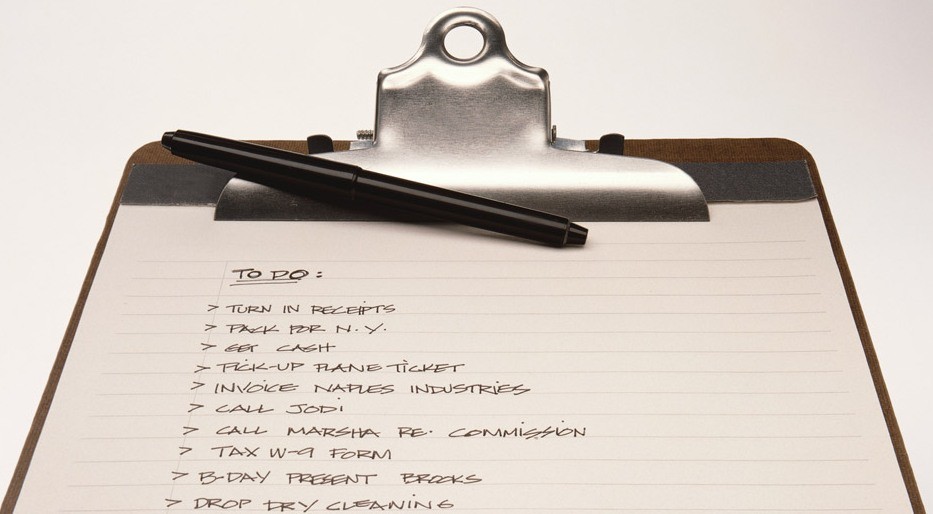 TO DO:
> TURN IN RECEIPTS
> PACK FOR N.Y.
> GET CASH
> PICK-UP PLANE TICKET
> INVOICE NAPLES INDUSTRIES
> CALL JODI
> CALL MARSHA RE. COMMISSION
> TAX W-9 FORM
> B-DAY PRESENT BROOKS
> DROP DRY CLEANING